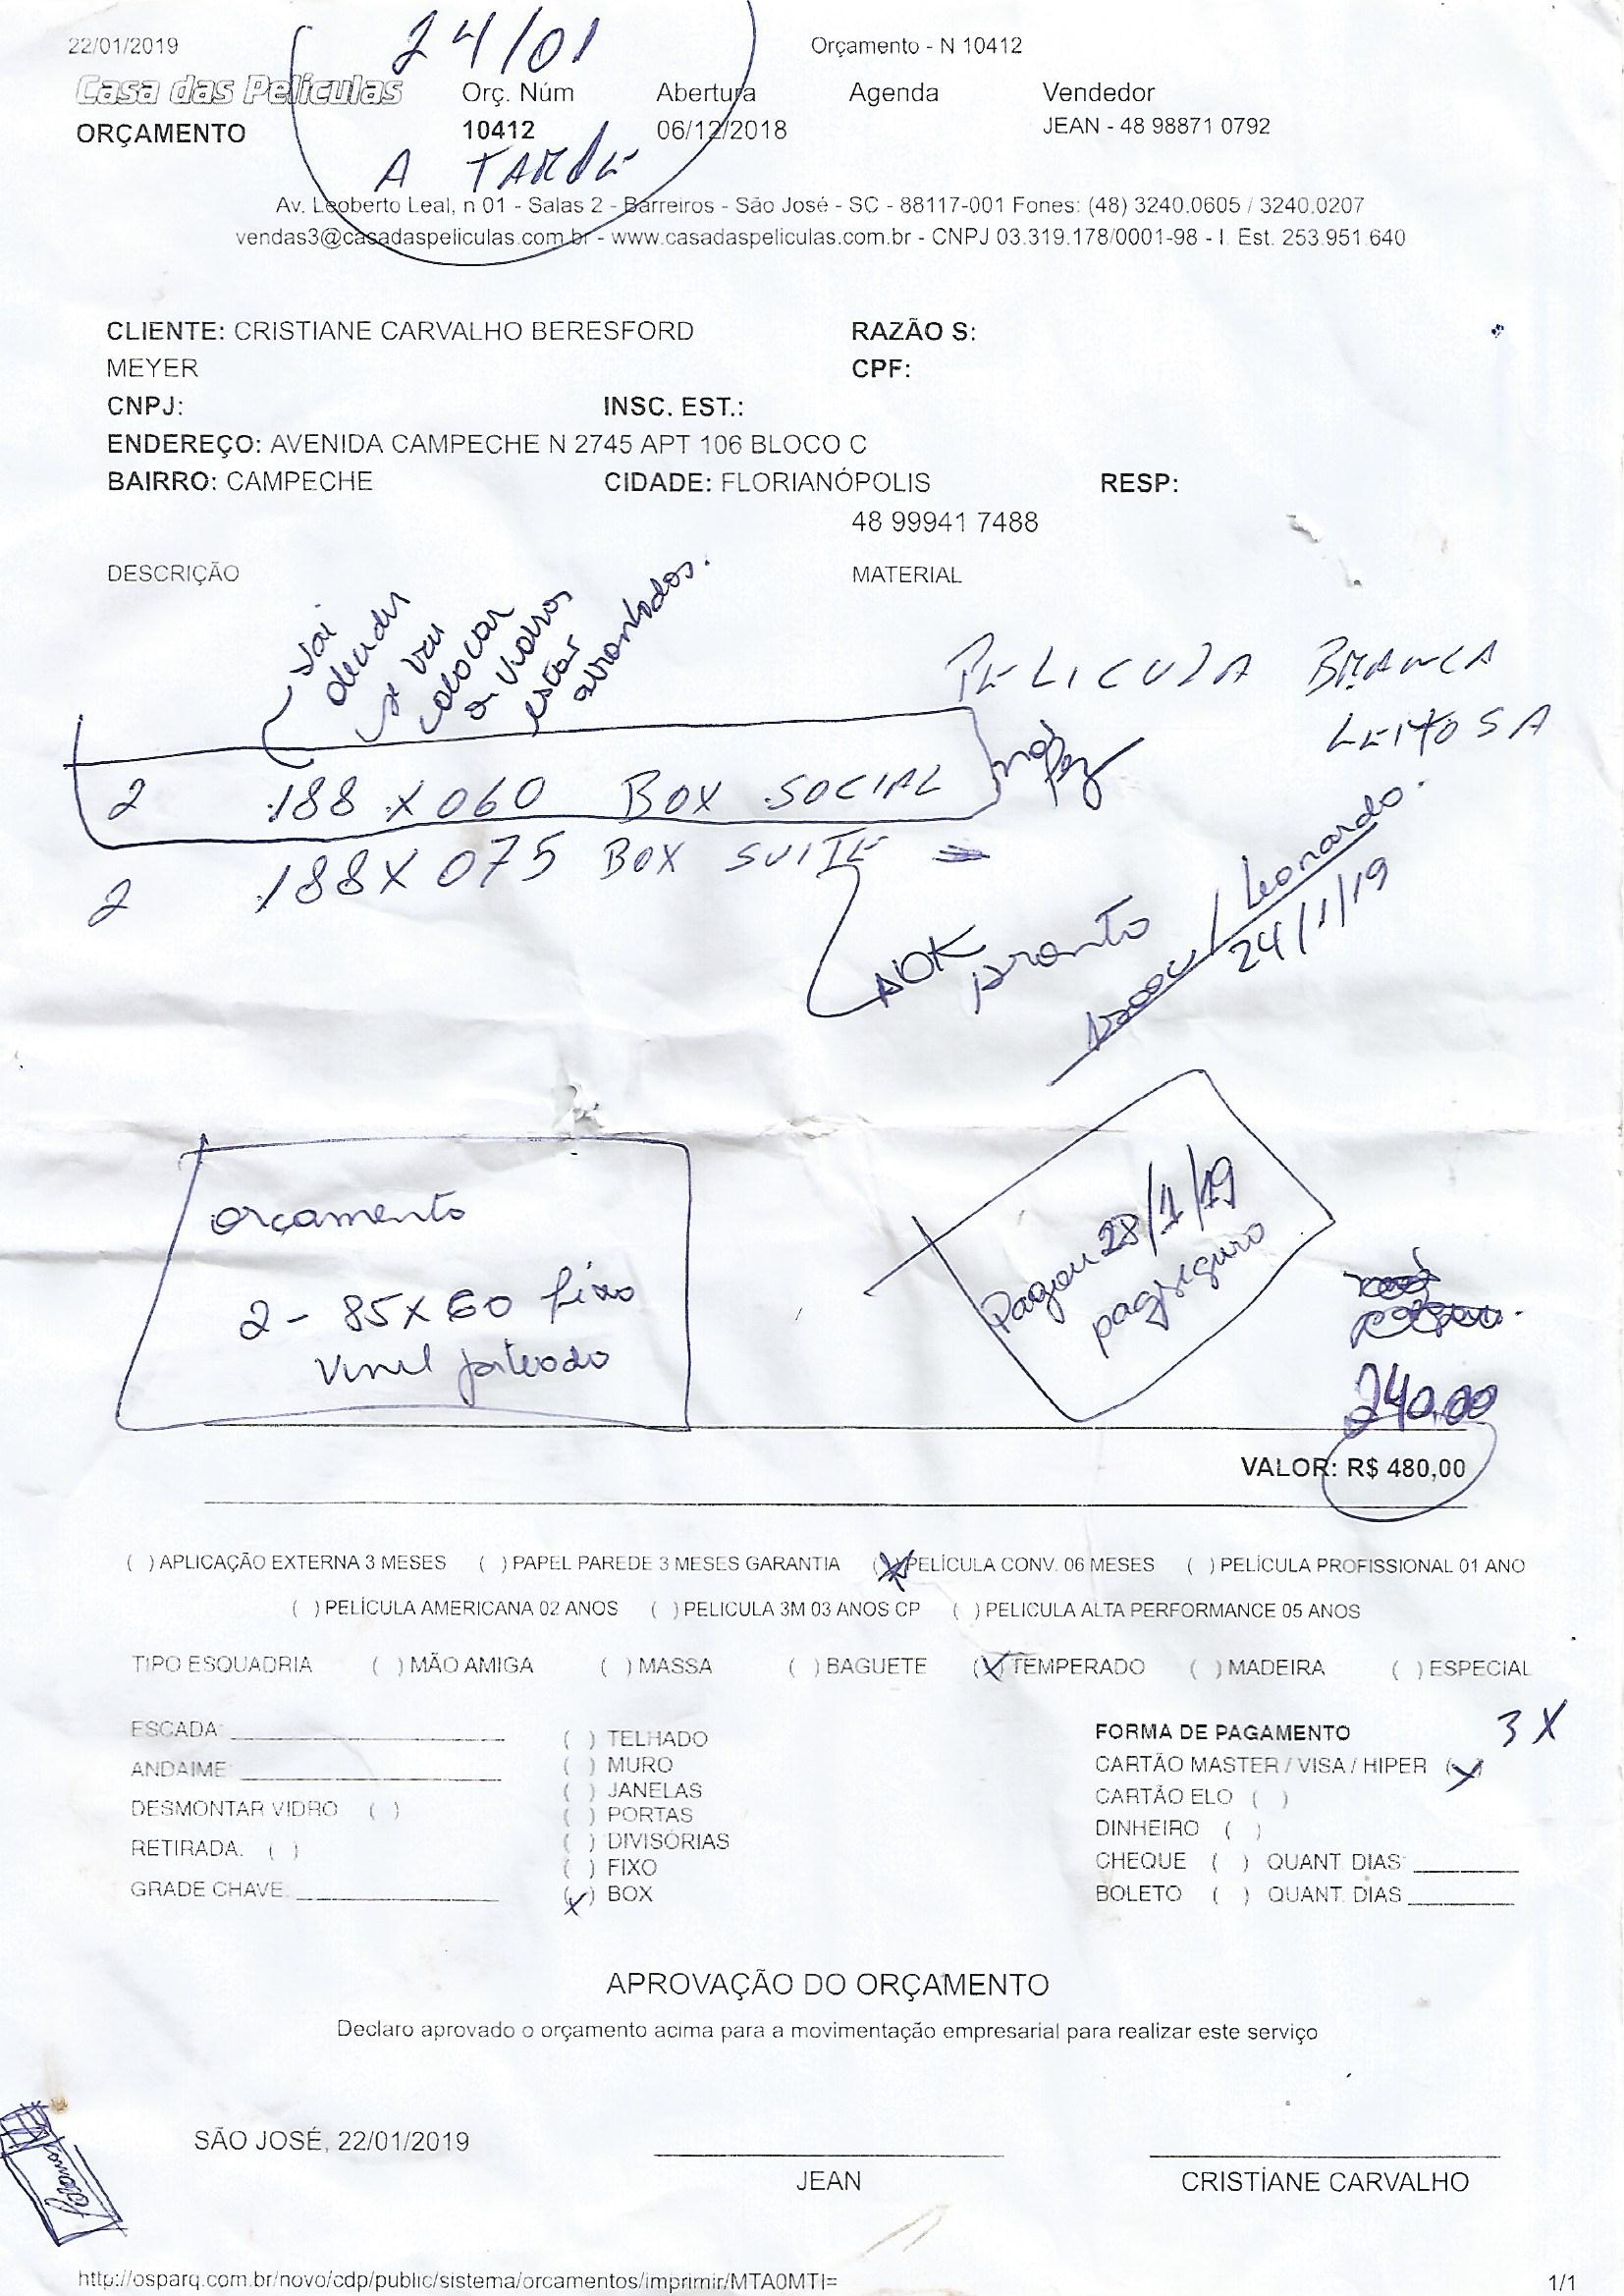 22/01/2019
24/01
Orçamento - N 10412
Casa das Películas
Orç. Núm Abertura Agenda Vendedor
ORÇAMENTO
10412 06/12/2018 JEAN - 48 98871 0792
A TARDE
Av. Leoberto Leal, n 01 - Salas 2 - Barreiros - São José - SC - 88117-001 Fones: (48) 3240.0605 / 3240.0207
vendas3@casadaspeliculas.com.br - www.casadaspeliculas.com.br - CNPJ 03.319.178/0001-98 - I. Est. 253.951.640
CLIENTE: CRISTIANE CARVALHO BERESFORD RAZÃO S:
MEYER CPF:
CNPJ: INSC. EST.:
ENDEREÇO: AVENIDA CAMPECHE N 2745 APT 106 BLOCO C
BAIRRO: CAMPECHE CIDADE: FLORIANÓPOLIS RESP:
48 99941 7488
DESCRIÇÃO MATERIAL
vai
decidir
se vai
colocar
vidros
estar
arranhados.
PELICULA BRANCA
LEITOSA
2 188 X 060 BOX SOCIAL
não
fez
2 188 X 075 BOX SUITE
OK
pronto
Leonardo.
24/1/19
orçamento
2 - 85 X 60 fixo
vinil jateado
Pagou 28/1/19
pagseguro
240,00
VALOR: R$ 480,00
( ) APLICAÇÃO EXTERNA 3 MESES ( ) PAPEL PAREDE 3 MESES GARANTIA (X) PELÍCULA CONV. 06 MESES ( ) PELÍCULA PROFISSIONAL 01 ANO
( ) PELÍCULA AMERICANA 02 ANOS ( ) PELICULA 3M 03 ANOS CP ( ) PELICULA ALTA PERFORMANCE 05 ANOS
TIPO ESQUADRIA ( ) MÃO AMIGA ( ) MASSA ( ) BAGUETE (X) TEMPERADO ( ) MADEIRA ( ) ESPECIAL
3 X
ESCADA: ( ) TELHADO FORMA DE PAGAMENTO
ANDAIME: ( ) MURO CARTÃO MASTER / VISA / HIPER (X)
( ) JANELAS CARTÃO ELO ( )
DESMONTAR VIDRO ( ) ( ) PORTAS DINHEIRO ( )
RETIRADA: ( ) ( ) DIVISÓRIAS CHEQUE ( ) QUANT. DIAS:
( ) FIXO
GRADE CHAVE: (X) BOX BOLETO ( ) QUANT. DIAS
APROVAÇÃO DO ORÇAMENTO
Declaro aprovado o orçamento acima para a movimentação empresarial para realizar este serviço
SÃO JOSÉ, 22/01/2019
JEAN CRISTIANE CARVALHO
http://osparq.com.br/novo/cdp/public/sistema/orcamentos/imprimir/MTA0MTI= 1/1